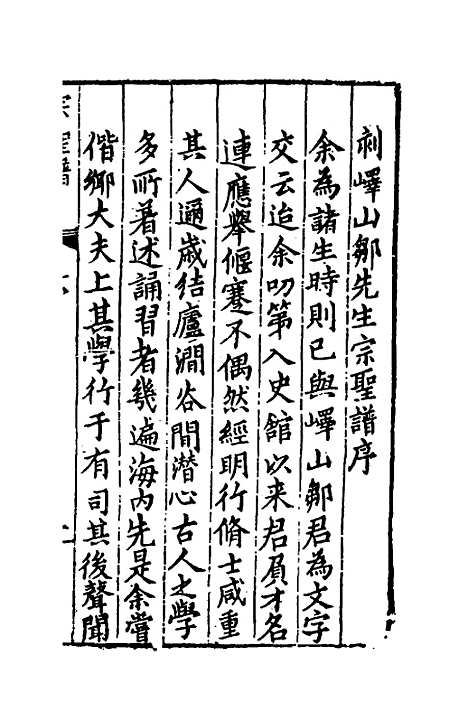 刺嶧山鄒先生宗聖譜序
余為諸生時則已與嶧山鄒君為文字
交云迨余叨第入史館以来君負才名
連應舉偃蹇不偶然經明行脩士咸重
其人邇歳结廬澗谷間潜心古人之學
多所著述誦習者幾遍海内先是余嘗
偕鄉大夫上其學行于有司其後聲聞
宗聖譜